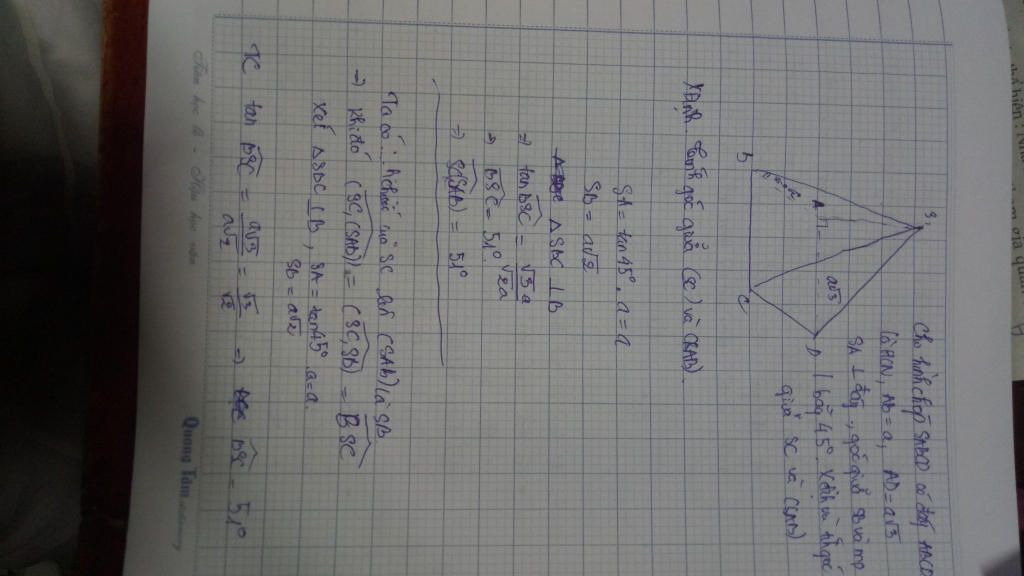 Cho hình chóp SABCD có đáy ABCD
là HCN, AB = a, AD = a√3
SA ⊥ đáy, góc giữa SB và mp
đáy 45°. Xđịnh và tính góc
giữa SC và (SAB)
S
A
a√3
D
B
45°
C
Xđịnh. tính góc giữa (SC) và (SAB).
SA = tan45°. a = a
SB = a√2
ΔSBC ⊥ B
⇒ tan BSC = √3a / √2a
⇒ BSC = 51°
⇒ SC(SAB) = 51°
Ta có: hchiếu của SC lên (SAB) là SB
→ Khi đó (SC, (SAB)) = (SC, SB) = BSC
Xét ΔSBC ⊥ B, SA = tan45°. a = a.
SB = a√2
TC tan BSC = a√3 / a√2 = √3 / √2 ⇒ BSC = 51°
Quang Tâm